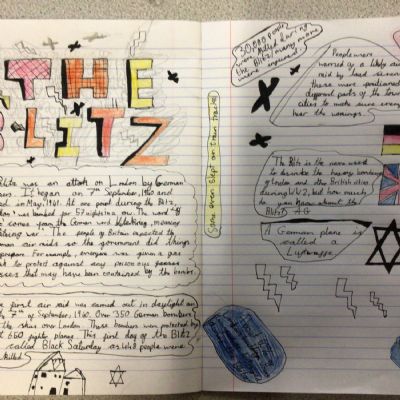 THE
BLITZ
Blitz was an attack on London by German
It began on 7th September, 1940 and
in May, 1941. At one point during the Blitz,
was bombed for 57 nights in a row. The word "B
comes from the German word blitzkrieg, meaning
war". The people of Britain expected
air raids so the government did things
prepare. For example, everyone was given a gas
to protect against any poisonous gasses
that may have been contained by the bombs.
first air raid was carried out in daylight on
7th of September, 1940. Over 350 German bombers
the skies over London. These bombers were protected by
650 fighter planes. This first day of the Blitz
called Black Saturday as 448 people were
killed.
Some even slept on train tracks!
30,000 people
were killed during
the Blitz/many more
were injured.
People were
warned of a likely air
raid by loud sirens
these were positioned
different parts of the towns
cities to make sure everyone
hear the warnings.
The Blitz is the name used
to describe the heavy bombing
of London and other British cities
during WW2, but how much
do you know about the
Blitz?
A German plane is
called a
Luftwaffe